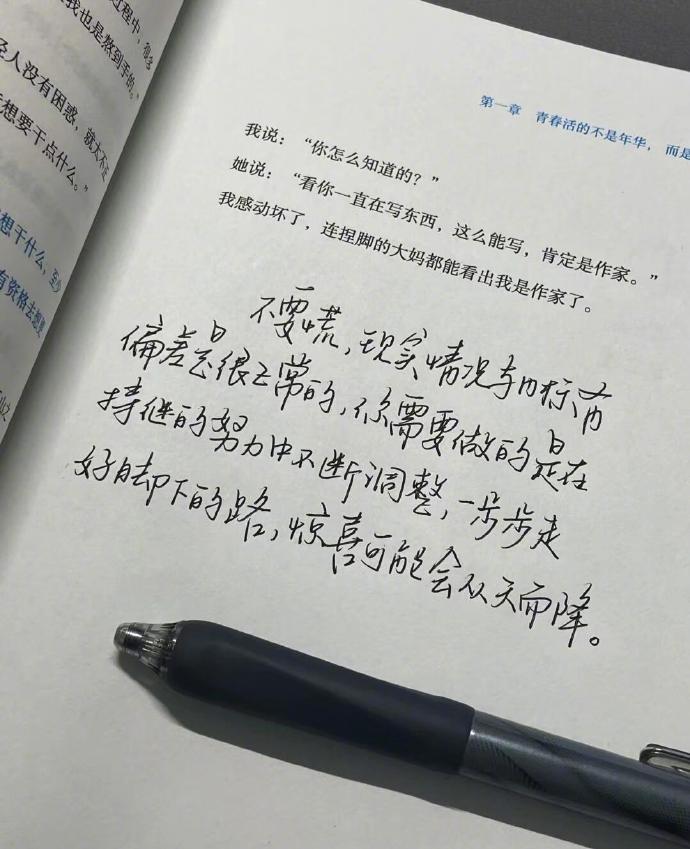 过程中，很多
我也是熬到手的。”
轻人没有困惑，就太不正
想要干点什么。”
想干什么，至少
有资格去想要
第一章 青春活的不是年华，而是
我说：“你怎么知道的？”
她说：“看你一直在写东西，这么能写，肯定是作家。”
我感动坏了，连捏脚的大妈都能看出我是作家了。
不要慌，现实情况与目标有
偏差是很正常的，你需要做的是在
持继的努力中不断调整，一步步走
好自却下的路，惊喜可能会从天而降。